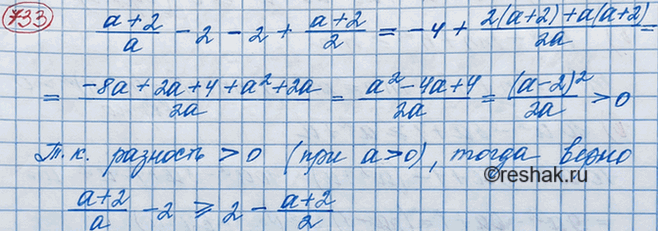 733
(a+2)/a - 2 - 2 + (a+2)/2 = -4 + (2(a+2)+a(a+2))/2a =
= (-8a+2a+4+a²+2a)/2a = (a²-4a+4)/2a = (a-2)²/2a > 0
Т.к. разность > 0 (при a>0), тогда верно
©reshak.ru
(a+2)/a - 2 ⩾ 2 - (a+2)/2